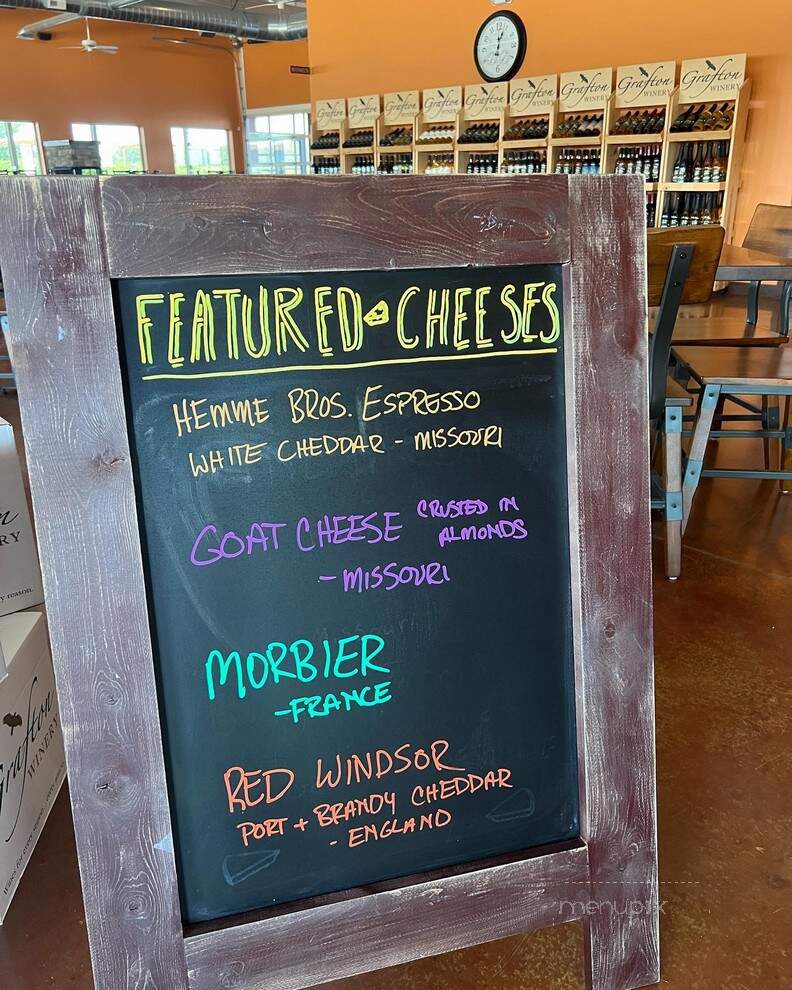 Grafton WINERY
Grafton WINERY
Grafton WINERY
Grafton WINERY
Grafton WINERY
Grafton WINERY
Grafton WINERY
Grafton WINERY
Grafton WINERY
FEATURED CHEESES
HEMME BROS. ESPRESSO
WHITE CHEDDAR - MISSOURI
GOAT CHEESE CRUSTED IN
ALMONDS
- MISSOURI
MORBIER
-FRANCE
RED WINDSOR
PORT + BRANDY CHEDDAR
- ENGLAND
RY
y reason.
Grafton
WINERY
menupix